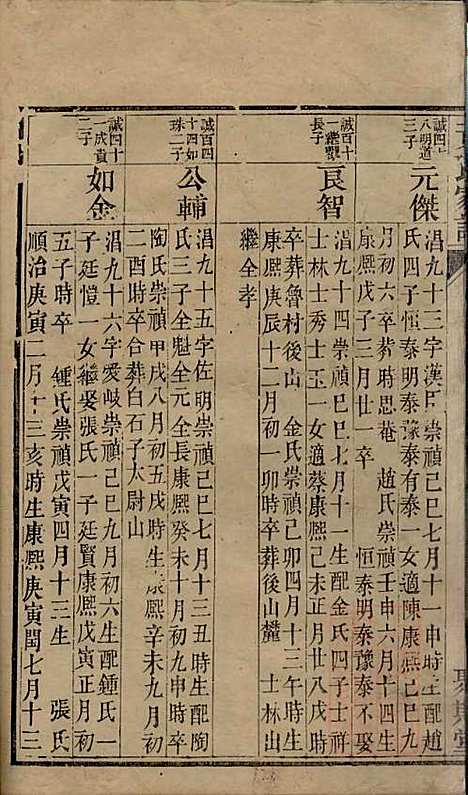 誠四十
八明道
三子
元傑
淐九十三字漢臣崇禎己巳七月十一申時生配趙
氏四子恒泰明泰豫泰有泰一女適陳康熙己巳九
月初六卒葬時思菴 趙氏崇禎壬申六月十四時生
康熙戊子三月廿一卒 恒泰明泰豫泰不娶
誠百十
一繼觀
長子
良智
淐九十四崇禎己巳七月十一生配金氏四子士
士林士秀士玉一女適蔡康熙己巳正月廿八戌時
卒葬魯村後山 金氏崇禎己卯四月十三午時生
康熙庚辰十二月初一卯時卒葬後山麓 士林出
繼全孝
誠百四
十四如
珠二子
公輔
淐九十五字佐明崇禎己巳七月十三丑時生配陶
氏三子全魁全元全長康熙癸未十月初九申時卒
陶氏崇禎甲戌八月初五戌時生康熙辛未九月初
二酉時卒合葬白石子太尉山
誠四十
一成貴
二子
如金
淐九十六字愛岐崇禎己巳九月初六生配鍾氏一
子廷愷一女繼娶張氏一子廷賢康熙戊寅正月初
五子時卒 鍾氏崇禎戊寅四月十三生 張氏
順治庚寅二月十三亥時生康熙庚寅閏七月十三